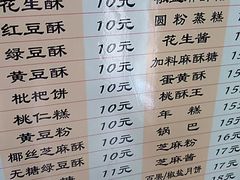 花生酥 10元
红豆酥 10元
绿豆酥 10元
黄豆酥 10元
枇杷饼 10元
桃仁糕 10元
黄豆粉 10元
椰丝芝麻酥 10元
无糖绿豆酥 10元
圆粉蒸糕
花生酱
加料麻酥糖
蛋黄酥
桃酥王
年糕 15元
锅巴
芝麻粉
芝麻酱 17元
百果/椒盐月饼